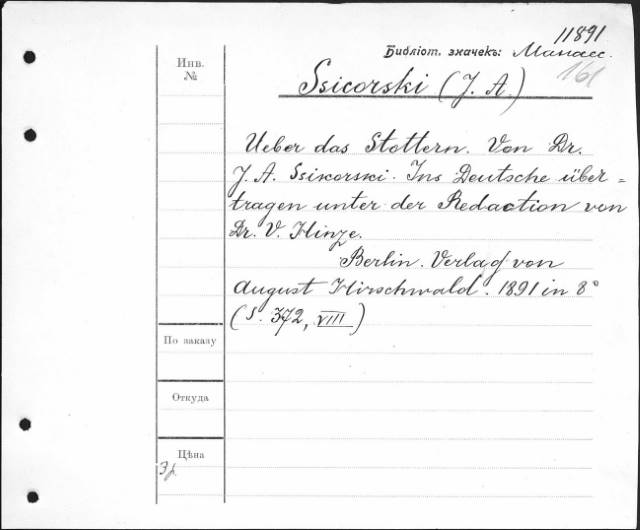 11891
Библіот. значекъ: Манасс.
161
Инв.
№
Ssicorski (J. A.)
Ueber das Stottern. Von Dr.
J. A. Ssikorski. Ins Deutsche über=
tragen unter der Redaction von
Dr. V. Hinze.
Berlin. Verlag von
August Hirschwald. 1891 in 8°
(S. 372, VIII)
По заказу
Откуда
Цѣна
3р